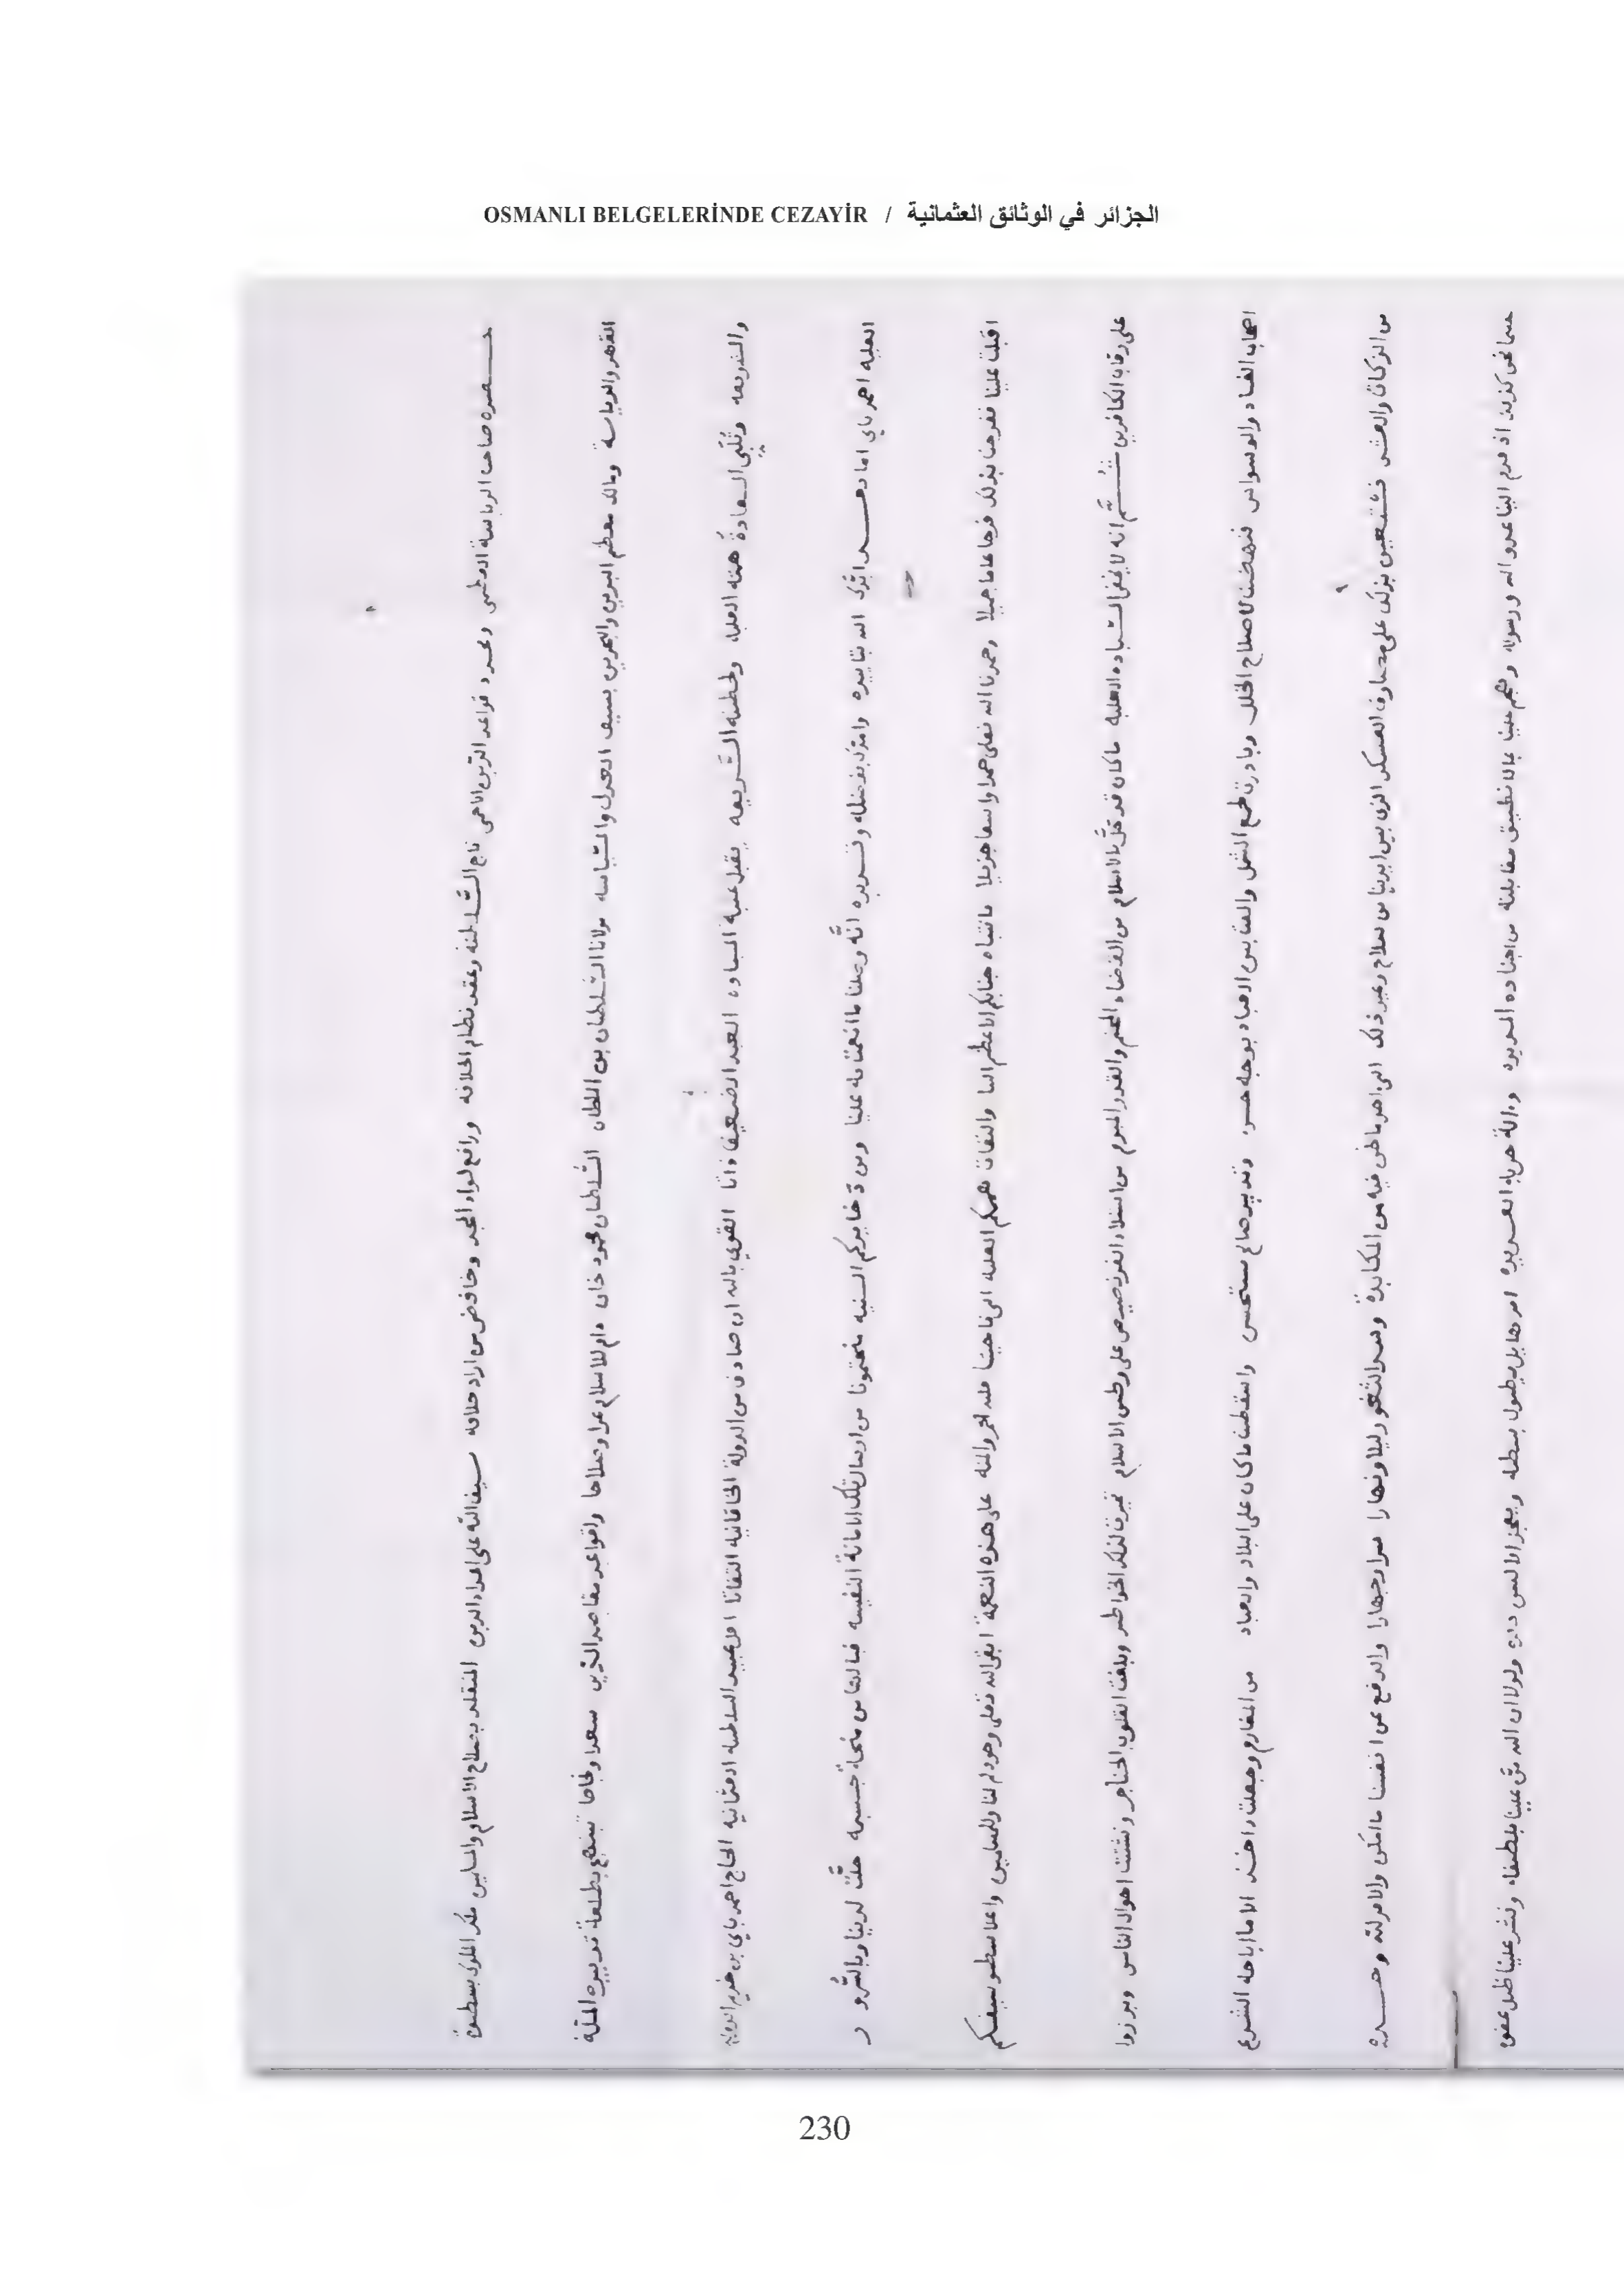 OSMANLI BELGELERİNDE CEZAYİR / الجزائر في الوثائق العثمانية
حضرة صاحب الرياسة العظمى ومجدد قواعد الدين الاحمى تاج السّلطنه وعقد نظام الخلافه ورافع لواء المجد وخافض من اراد خلافه سيف الله على اعداء الدين المتقلد بصلاح الاسلام والمسلمين ملك الملوك بسطوة
القهر والرياسة ومالك معظم البرين والبحرين بسيف العدل والسّياسه مولانا السّلطان بن السلطان السّلطان محمود خان دام للاسلام عزا وصلاحا ولقواعد مقاصد الدّين سعدا ونجاحا تبتهج بطلعة تدبيره الملّة
والشريعه السعادة همته العليه ولحظته الشّريعه يقبل عتبة السعاده العبد الضعيف ذاتا القوي بالله ان صادف من الدولة الخاقانيه التفاتا اقل عبيد السلطنه العثمانيه الحاج احمد باي بن خديم الدولة
العليه احمد باي اما بعد ايّدك الله بتاييده وامدّك بفضله وتسديده انّه وصلنا ما انعمتم به علينا ومن ذخايركم السنيه منحتمونا من ارسال تلك الامانة النفيسه فيا لها من منحة جسيمه حلّت لدينا وبالسّرور
اقبلت علينا ففرحنا بذلك فرحا عاما جميلا وحمدنا الله تعالى حمدا واسعا جزيلا جنابكم الاعظم لنا والتفات هممكم العليه الى ناحيتنا فلله الحمد والمنه على هذه النعمة ابقى الله تعالى وجودكم لنا وللمسلمين واعلا سطو سيفكم
على رقاب الكافرين ثــم انه لا يخفى السّياده العليه ما كان قد حلّ بالاسلام من القضاء المحتم والقدر المبروم من استلاء الفرنصيص على وطن الاسلام تغيرت لذلك الخواطر وبلغت القلوب الحناجر وتشتت احوال الناس وبرزوا
اصحاب الفساد والوسواس فنهضنا لاصلاح الخلل وبادرت لجمع الشمل والفت بين العباد بوجه حسن وتدبير صالح مستحسن واسقطنا ما كان على البلاد والعباد من المغارم وجعلت ناخذ الا ما اباحه الشرع
من الزكاة والعشر فنستعين بذلك على مصارف العسكر الذي بين ايدينا من سلاح وغير ذلك الى اخر ما نحن فيه من المكابدة وسد الثغور ليلا ونهارا سرا وجهارا والدفع عن انفسنا ما امكن والامر لله وحــده
حينما نحن كذلك اذ قدم الينا عدو الله ورسوله وهجم علينا بما لا نطيق مقابلته من اجناده المريده وءالة حربه العديده امدها بل يطول بسطه ويعجز الالسن ولولا ان الله منّ علينا بلطفه ونشر علينا ظل عفوه
230